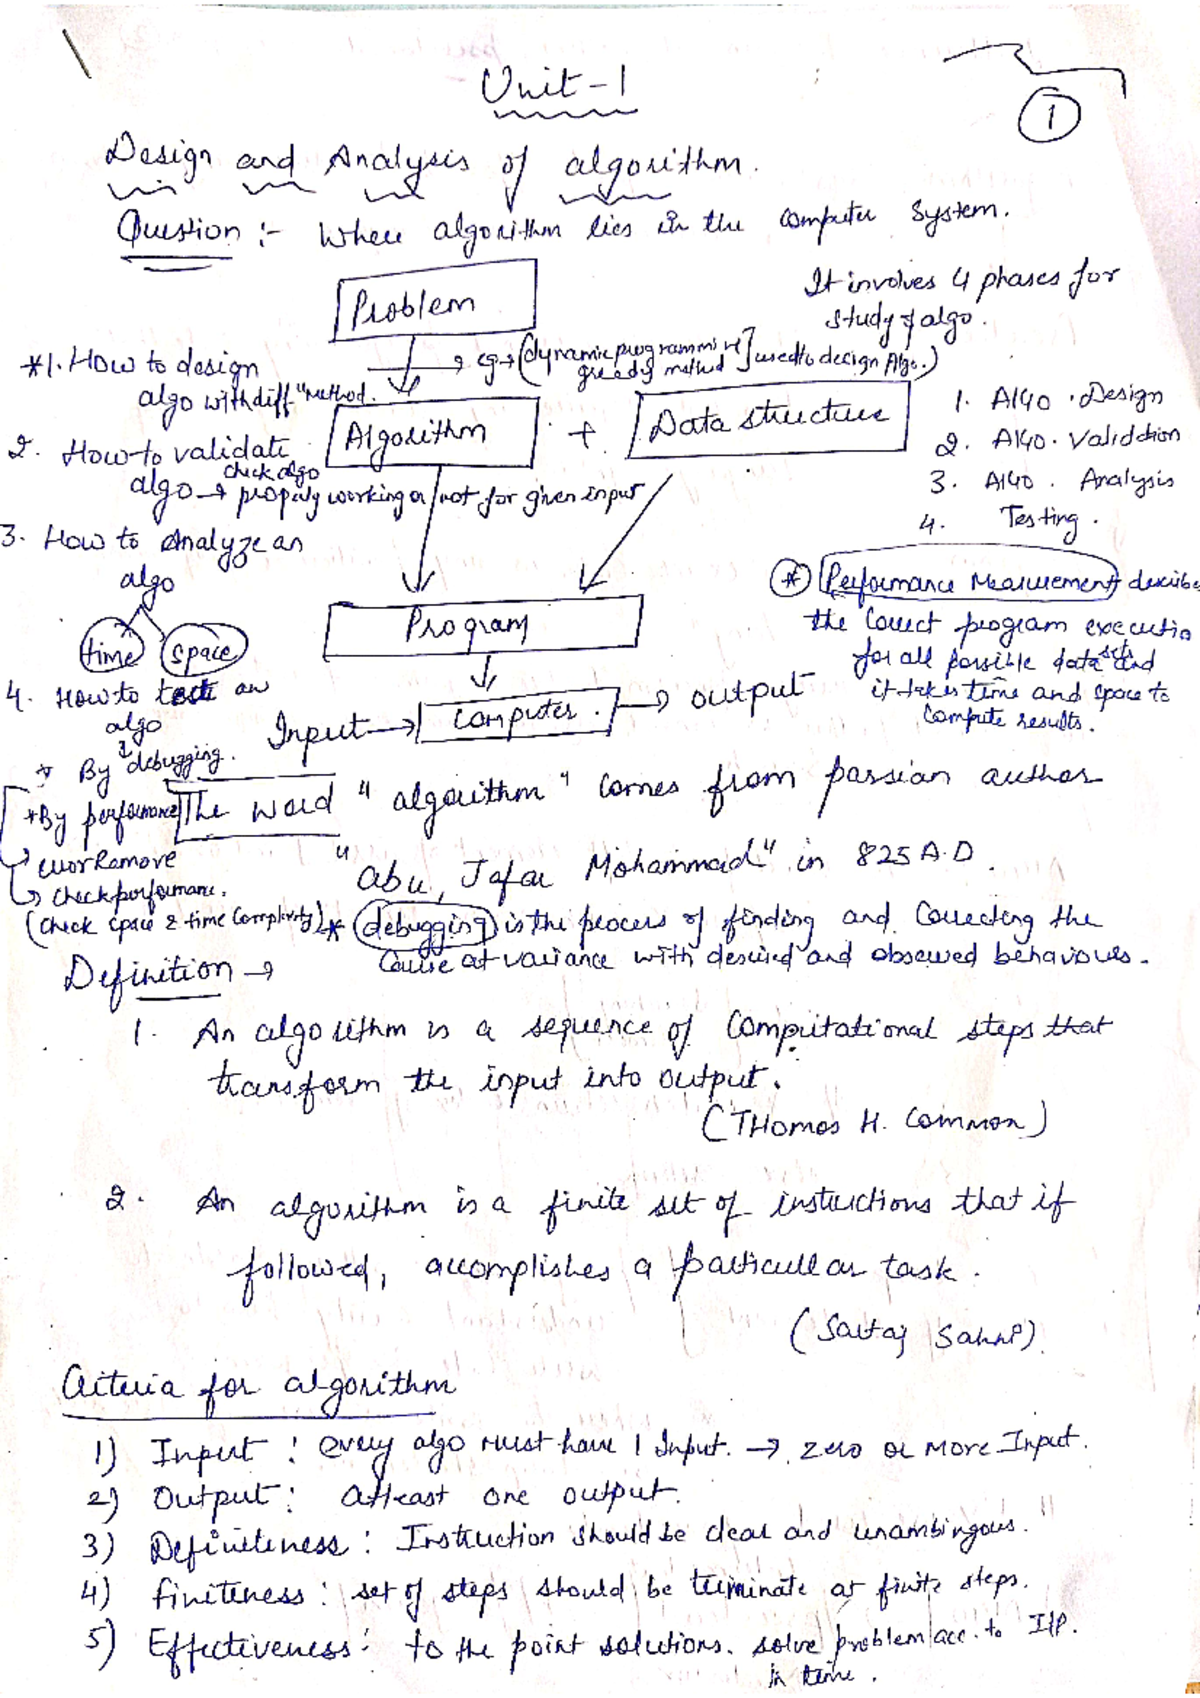 Unit-1
1
Design and Analysis of algorithm.
Question :- Where algorithm lies in the computer System.
Problem
It involves 4 phases for
study of algo.
*1. How to design
algo with diff "method.
→ eg → (dynamic programming
greedy method ] used to design Algo.)
Algorithm + Data structure
1. Algo. Design
2. Algo. Validation
3. Algo. Analysis
4. Testing.
2. How to validate
check algo
algo → properly working or not for given input
3. How to Analyze an
algo
time space
Program
(*) Performance Measurement describe
the correct program executio
for all possible data sets and
it takes time and space to
compute results.
4. How to test an
algo
Input → computer. → output
* By debugging.
*By performance
error Remove
→ check performance.
(check space & time Complexity)
The word "algorithm" comes from parsian author
"Abu, Jafar Mohammad" in 825 A.D.
* debugging is the process of finding and Correcting the
Cause at variance with desired and observed behaviours.
Definition →
1. An algorithm is a sequence of Computational steps that
transform the input into output.
(THomas H. Common)
2. An algorithm is a finite set of instructions that if
followed, accomplishes a particular task.
(Sartaj Sahni)
Criteria for algorithm
1) Input : every algo must have 1 Input. → zero or More Input.
2) Output : Atleast one output.
3) Definiteness : Instruction should be clear and unambingous.
4) finiteness : set of steps should be terminate at finite steps.
5) Effectiveness : to the point solutions. solve problem acc. to I/P.
in time.